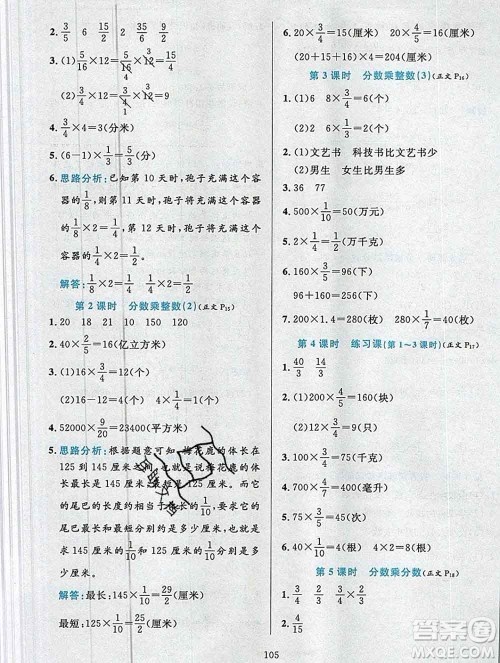 2. 3/5 6 2 35/6 9/50 2/3
3. (1) 5/16 × 12 = 15/4 5/16 × 12 = 15/4
(2) 3/4 × 12 = 9 3/4 × 12 = 9
4. 3/4 × 4 = 3(分米)
5. (6-1) × 3/5 = 3(分)
6. 思路分析:已知第 10 天时,孢子充满这个容
器的 1/8,那么第 11 天时,孢子将充满这个容
器的 1/8 × 2 = 1/4,第 12 天时,孢子将充满这个
容器的 1/4 × 2 = 1/2。
解答: 1/8 × 2 = 1/4 1/4 × 2 = 1/2
第 2 课时 分数乘整数(2) (正文 P15)
1. 20 187 18 150
2. 40 × 2/5 = 16(亿立方米)
3. (1) 16 × 3/4 = 12(个)
(2) 4 × 3/4 = 3(个)
4. 52000 × 9/20 = 23400(平方米)
5. 思路分析:根据题意可知,梅花鹿的体长在
125 到 145 厘米之间,也就是说,梅花鹿的体
长最长是 145 厘米,最短是 125 厘米。而它
的尾巴长度大约是体长的 1/10,要求它的
尾巴最长和最短分别约是多少厘米,就是
求 145 厘米的 1/10 是多少和 125 厘米的 1/10
是多少厘米。
解答:最长:145 × 1/10 = 29/2(厘米)
最短:125 × 1/10 = 25/2(厘米)
6. 20 × 3/4 = 15(厘米)
(20+15+16) × 4 = 204(厘米)
第 3 课时 分数乘整数(3) (正文 P16)
1. (1) 6 8 × 3/4 = 6(个)
(2) 8 10 × 4/5 = 8(个)
2. (1)文艺书 科技书比文艺书少
(2)男生 女生比男生多
3. 36 77
4. 500 × 1/10 = 50(元)
5. 200 × 1/4 = 50(万千克)
6. 960 × 1/6 = 160(千克)
96+160=256(千克)
7. 200 × 7/5 = 280(枚) 280 × 1/7 = 40(枚)
第 4 课时 练习课(第 1~3 课时) (正文 P17)
3. (1) 200 × 4/5 = 160(块)
(2) 40 × 2/5 = 16(个)
4. 500 × 4/5 = 400(毫升)
5. 75 × 3/5 = 45(次)
6. 40 × 1/10 = 4(根) 4×2=8(根)
第 5 课时 分数乘分数 (正文 P18)
105
作业大百科
作业帮
MXQE.COM